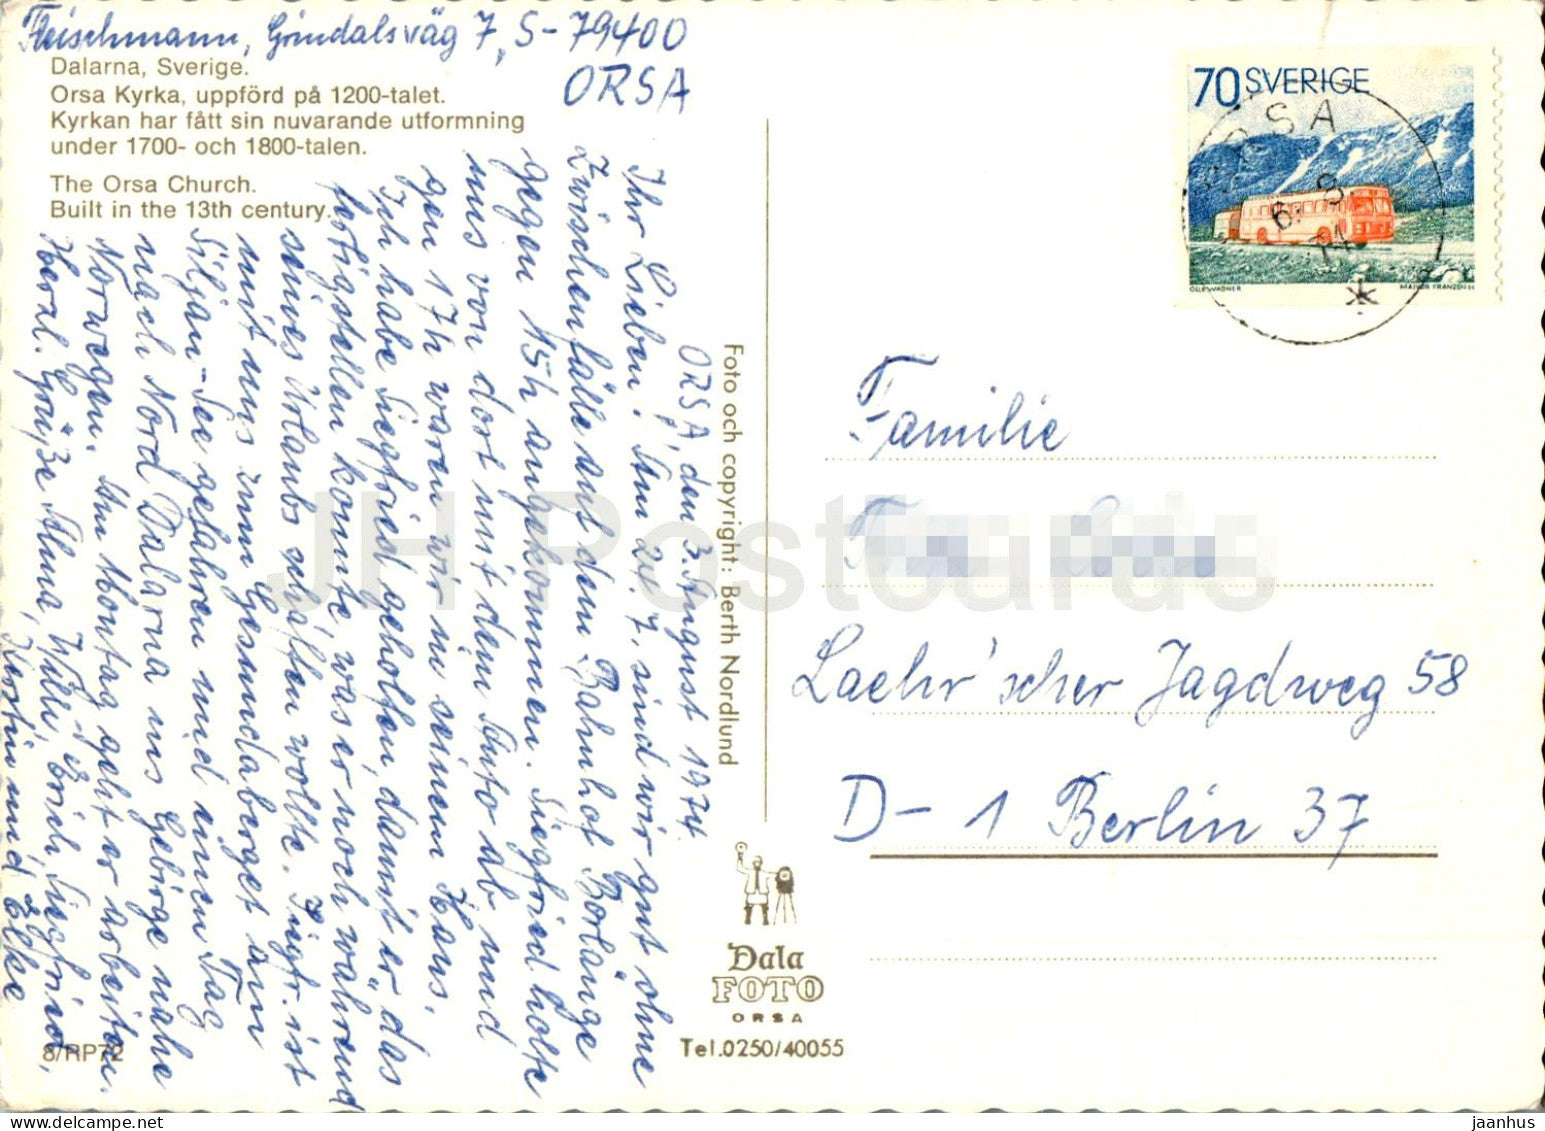 Fleischmann, Grindalsväg 7, S-79400
ORSA
Dalarna, Sverige.
Orsa Kyrka, uppförd på 1200-talet.
Kyrkan har fått sin nuvarande utformning
under 1700- och 1800-talen.
The Orsa Church.
Built in the 13th century.
ORSA, den 3. August 1974.
Ihr Lieben! Am 24. 7. sind wir gut ohne
Zwischenfälle auf dem Bahnhof Borlänge
gegen 15h angekommen. Siegfried holte
uns von dort mit dem Auto ab und
gen 17h waren wir in seinem Haus.
Ich habe Siegfried geholfen damit er das
fertigstellen konnte, was er noch während
seines Urlaubs schaffen wollte. Siegfr. ist
mit uns zum Gesundaberget am
Siljan-See gefahren und einen Tag
nach Nord Dalarna ins Gebirge nahe
Norwegen. Am Montag geht er arbeiten.
Herzl. Grüße Alma, Willi, Erich, Siegfried,
Kerstin und Elke
8/RP72
Foto och copyright: Berth Nordlund
Dala
FOTO
ORSA
Tel.0250/40055
70 SVERIGE
OLLE WAGNER
MAJVOR FRANZÉN SC
ORSA
6. 8
74
Familie
Laehr'scher Jagdweg 58
D- 1 Berlin 37
JH Postcards
jaanhus